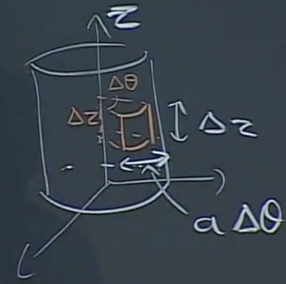 z
Δθ
Δz
Δz
a Δθ